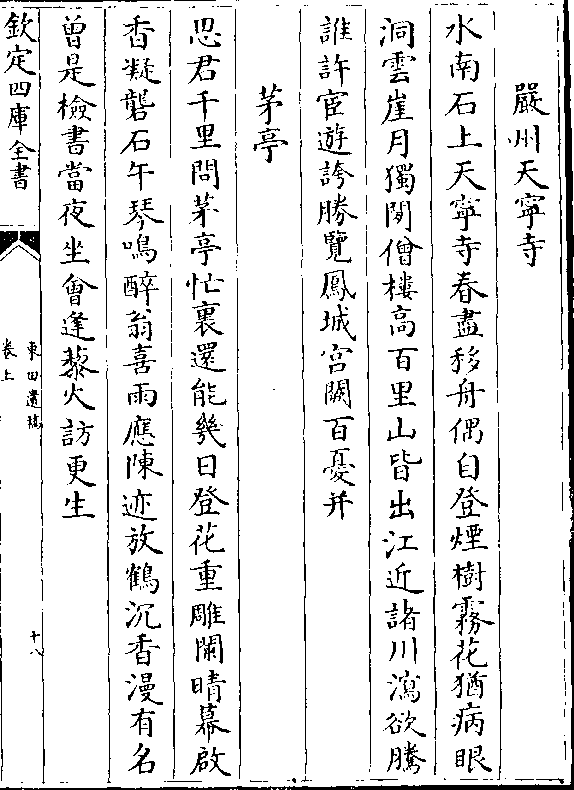 嚴州天寧寺
水南石上天寧寺春盡移舟偶自登煙樹霧花猶病眼
洞雲崖月獨閒僧樓高百里山皆出江近諸川瀉欲騰
誰許宦遊誇勝覽鳳城宮闕百憂并
茅亭
思君千里問茅亭忙裏還能幾日登花重雕闌晴幕啟
香凝礱石午琴鳴醉翁喜雨應陳迹放鶴沉香漫有名
曾是檢書當夜坐會逢藜火訪更生
欽定四庫全書
東田遺稿
卷上
十八